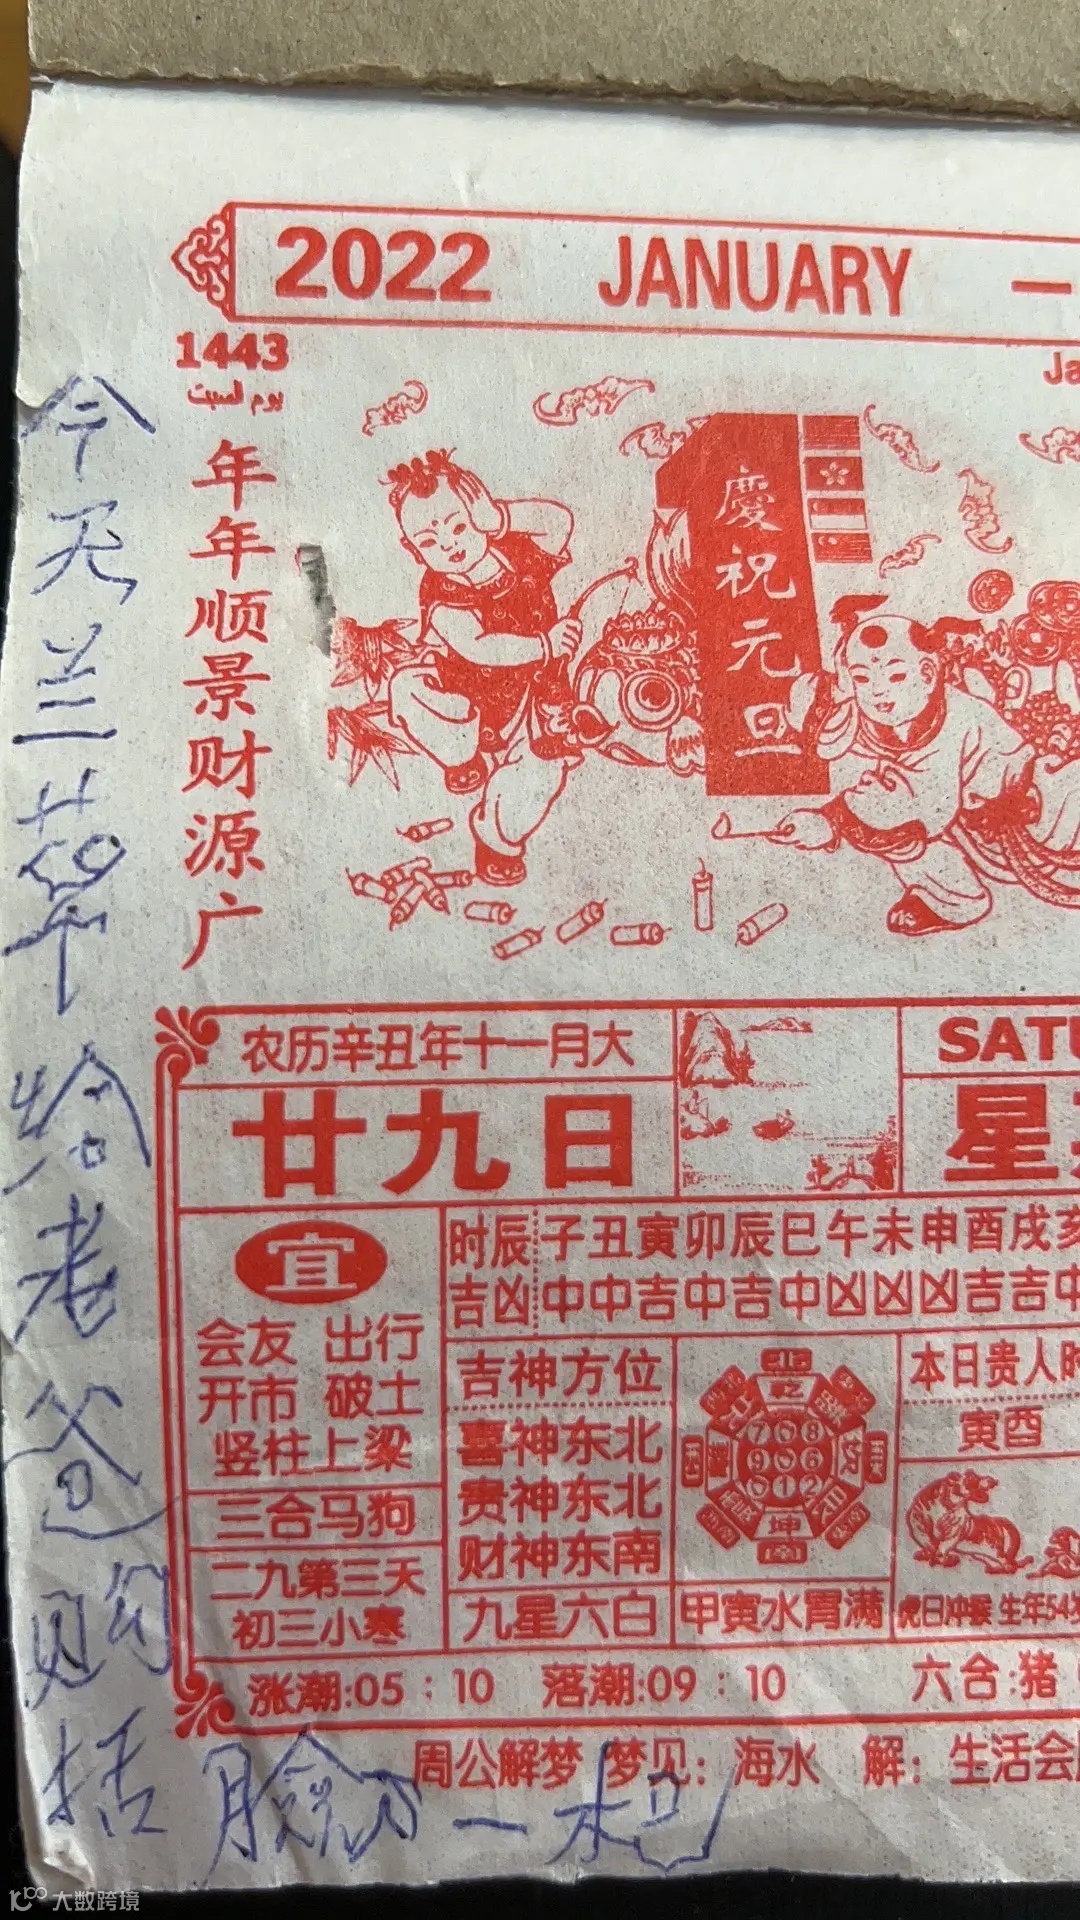 2022 JANUARY 一
1443
يوم السبت
Ja
年年顺景财源广
慶祝元旦
农历辛丑年十一月大
廿九日
SATU
星
宜
会友 出行
开市 破土
竖柱上梁
三合马狗
二九第三天
初三小寒
时辰 子丑寅卯辰巳午未申酉戌亥
吉凶 中中吉中吉中凶凶凶吉吉中
吉神方位
喜神东北
贵神东北
财神东南
九星六白
7 8
9 6
1 2
乾
坤
甲寅水胃满
本日贵人时
寅酉
虎日冲猴 生年54岁
涨潮:05：10 落潮:09：10 六合:猪
周公解梦 梦见：海水 解：生活会
今天兰
给老爸
一起
大数跨境